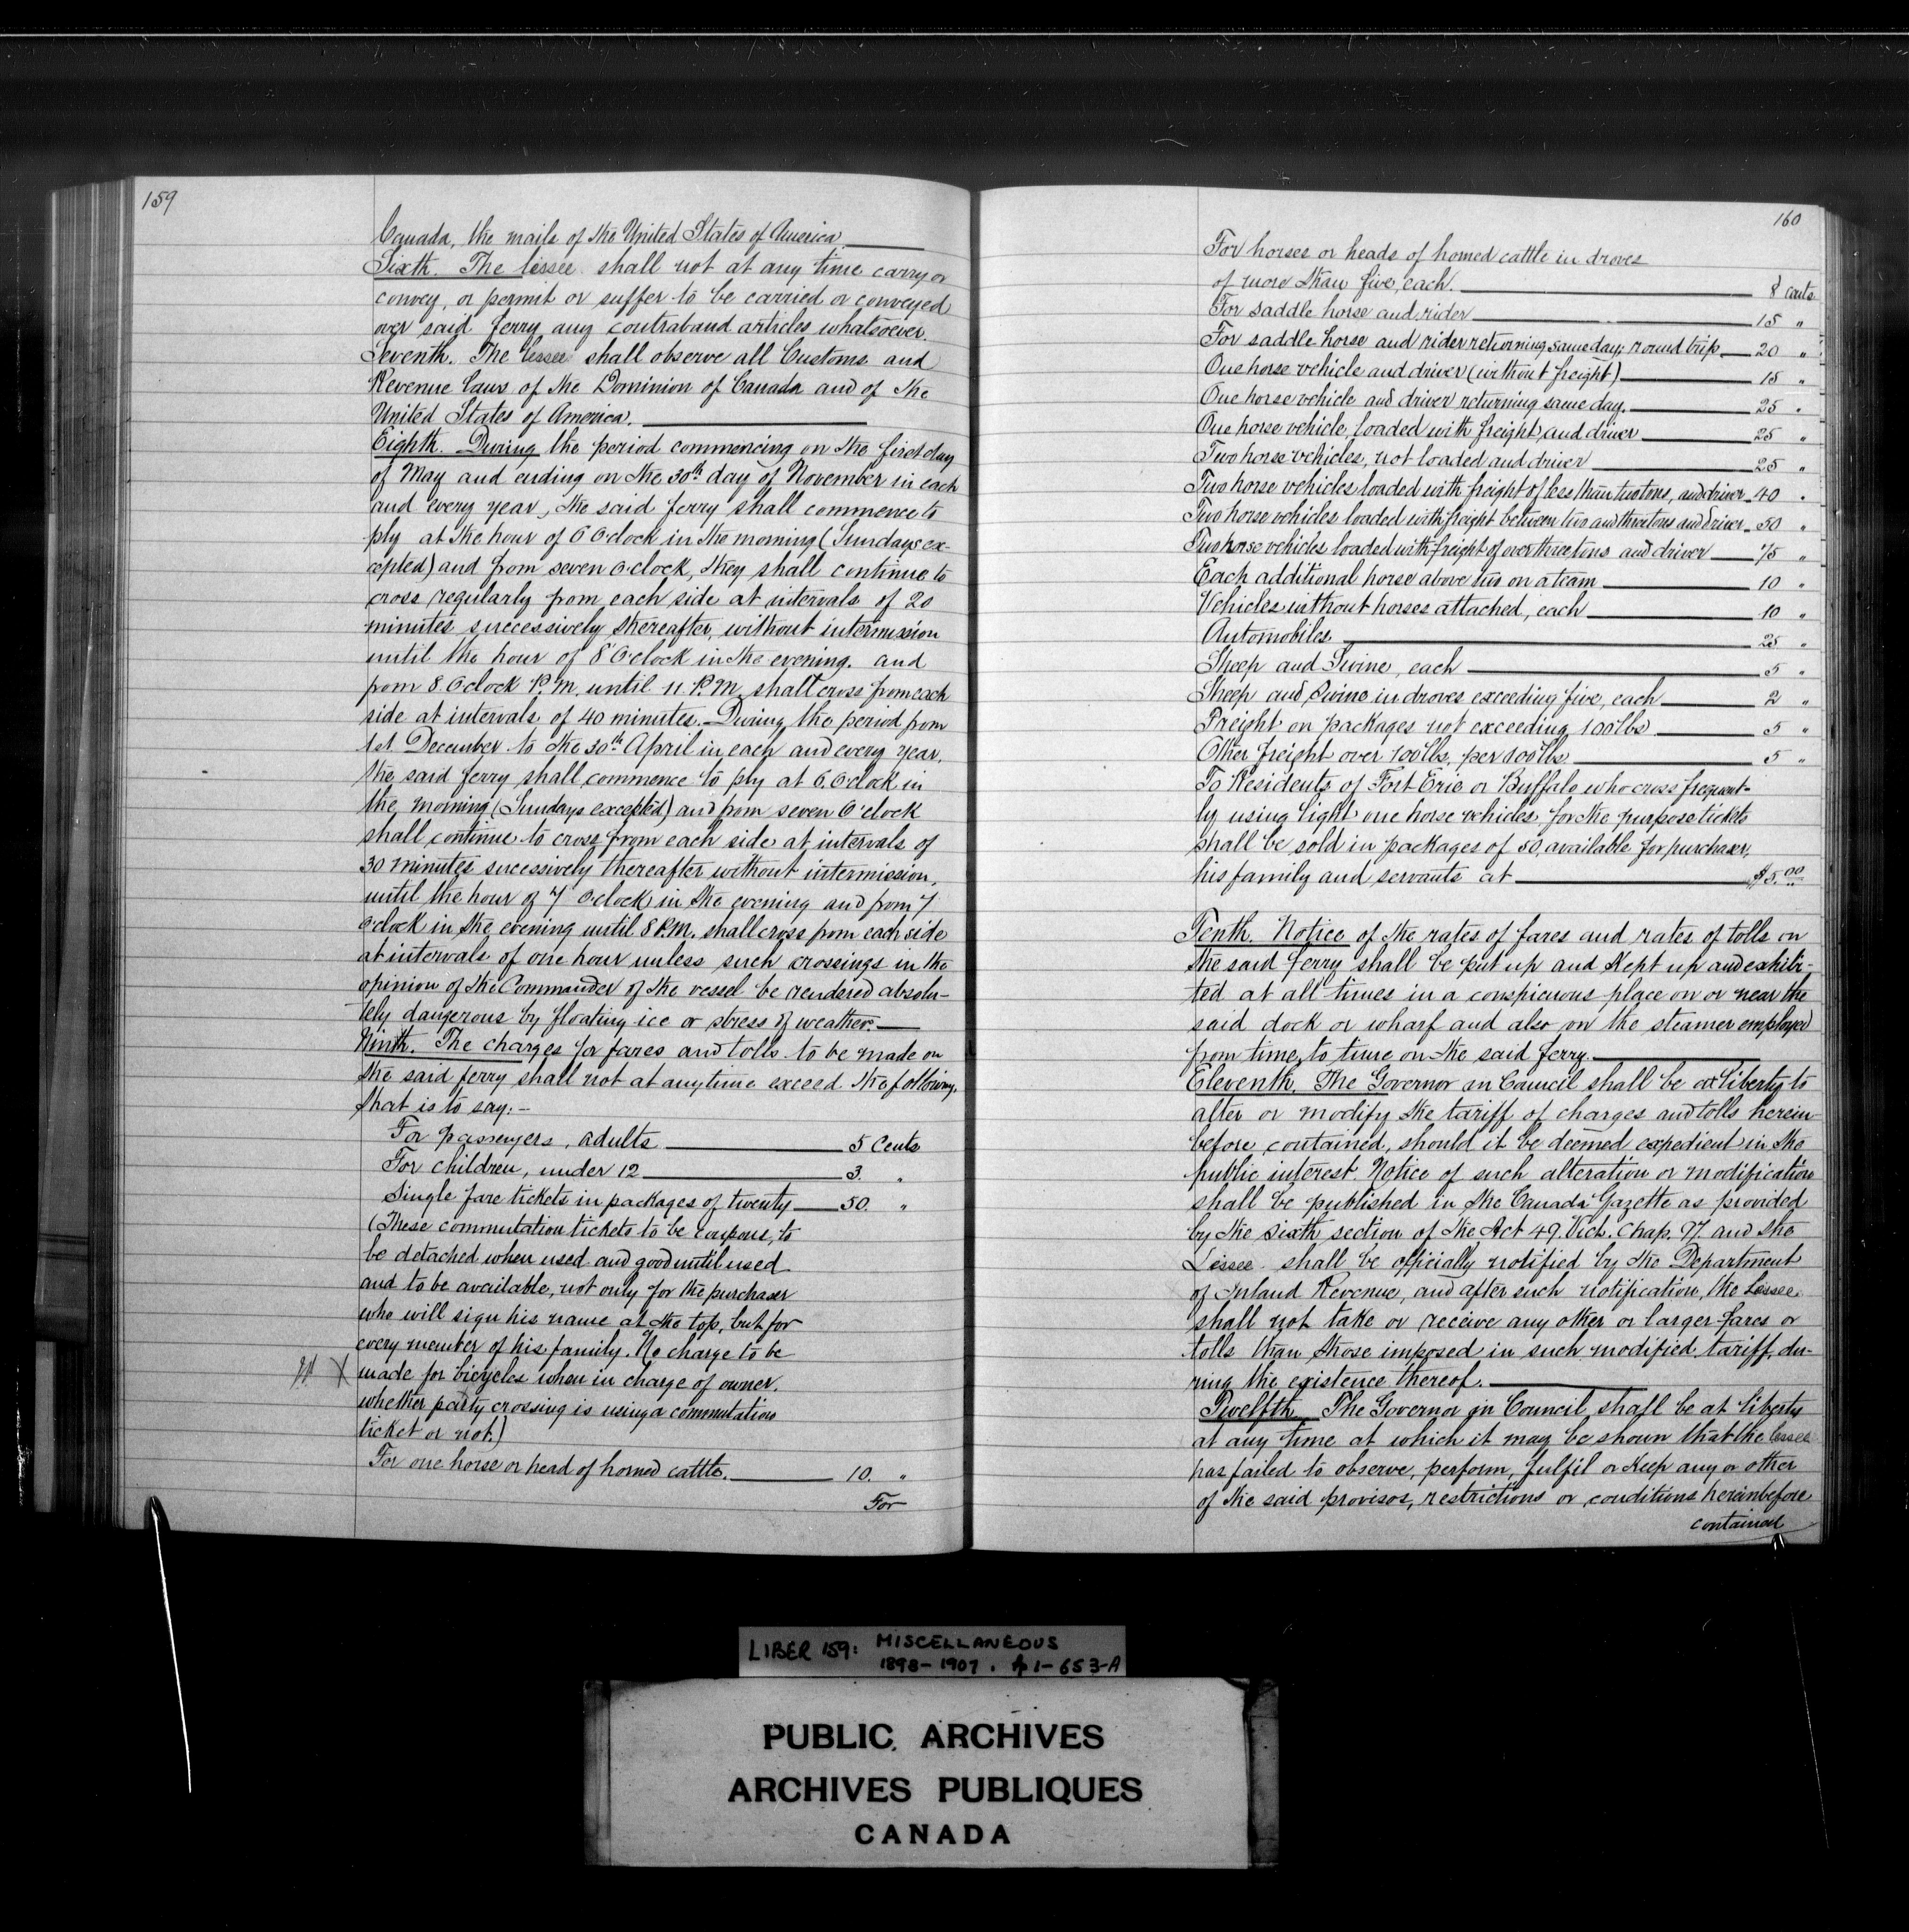 159
Canada, the mails of the United States of America.
Sixth. The lessee shall not at any time carry or
convey, or permit or suffer to be carried or conveyed
over said ferry any contraband articles whatsoever.
Seventh. The lessee shall observe all Customs and
Revenue laws of the Dominion of Canada and of the
United States of America.
Eighth. During the period commencing on the first day
of May and ending on the 30th day of November in each
and every year, the said ferry shall commence to
ply at the hour of 6 O'clock in the morning (Sundays ex-
cepted) and from seven o'clock, they shall continue to
cross regularly from each side at intervals of 20
minutes successively thereafter, without intermission
until the hour of 8 O'clock in the evening. and
from 8 O'clock P.M. until 11 P.M. shall cross from each
side at intervals of 40 minutes. During the period from
1st December to the 30th April in each and every year.
the said ferry shall commence to ply at 6 O'clock in
the morning (Sundays excepted) and from seven O'clock
shall continue to cross from each side at intervals of
30 minutes successively thereafter without intermission,
until the hour of 7 o'clock in the evening and from 7
o'clock in the evening until 8 P.M. shall cross from each side
at intervals of one hour unless such crossings in the
opinion of the Commander of the vessel be rendered absolu-
tely dangerous by floating ice or stress of weather.
Ninth. The charges for fares and tolls to be made on
the said ferry shall not at anytime exceed the following,
that is to say:-
For passengers, adults 5 Cents
For children, under 12 3. "
Single fare tickets in packages of twenty 50. "
(These commutation tickets to be coupons, to
be detached when used and good until used
and to be available, not only for the purchaser
who will sign his name at the top, but for
every member of his family. No charge to be
X made for bicycles when in charge of owner.
whether party crossing is using a commutation
ticket or not.)
For one horse or head of horned cattle. 10. "
For
160
For horses or heads of horned cattle in droves
of more than five, each. 8 cents
For saddle horse and rider 15 "
For saddle horse and rider returning same day; round trip 20 "
One horse vehicle and driver (without freight) 15 "
One horse vehicle and driver returning same day. 25 "
One horse vehicle, loaded with freight, and driver 25 "
Two horse vehicles, not loaded and driver 25 "
Two horse vehicles loaded with freight of less than two tons, and driver 40 "
Two horse vehicles loaded with freight between two and three tons and driver 50 "
Two horse vehicles loaded with freight of over three tons and driver 75 "
Each additional horse above two on a team 10 "
Vehicles without horses attached, each 10 "
Automobiles 25 "
Sheep and Swine, each 5 "
Sheep and Swine in droves exceeding five, each 2 "
Freight on packages not exceeding 100 lbs 5 "
Other freight over 100 lbs. per 100 lbs 5 "
To Residents of Fort Erie or Buffalo who cross frequent-
ly using light one horse vehicles, for the purpose tickets
shall be sold in packages of 50, available for purchaser,
his family and servants at $5.00
Tenth. Notice of the rates of fares and rates of tolls on
the said ferry shall be put up and kept up and exhibi-
ted at all times in a conspicuous place on or near the
said dock or wharf and also on the steamer employed
from time to time on the said ferry.
Eleventh. The Governor in Council shall be at liberty to
alter or modify the tariff of charges and tolls herein-
before contained, should it be deemed expedient in the
public interest. Notice of such alteration or modification
shall be published in the Canada Gazette as provided
by the sixth section of the Act 49. Vict. Chap. 97. and the
Lessee shall be officially notified by the Department
of Inland Revenue, and after such notification, the Lessee
shall not take or receive any other or larger fares or
tolls than those imposed in such modified tariff, du-
ring the existence thereof.
Twelfth. The Governor in Council shall be at liberty
at any time at which it may be shown that the lessee
has failed to observe, perform, fulfil or keep any or other
of the said provisos, restrictions or conditions hereinbefore
contained
LIBER 159: MISCELLANEOUS
1898-1907. p 1-653-A
PUBLIC ARCHIVES
ARCHIVES PUBLIQUES
CANADA